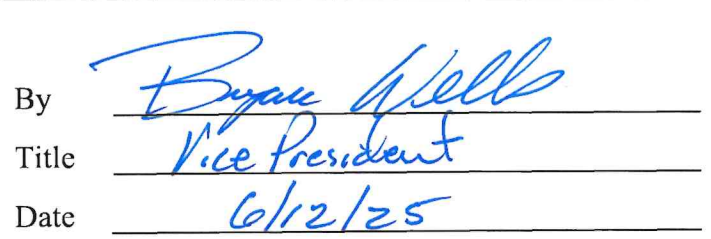 By Bryan Wells
Title Vice President
Date 6/12/25